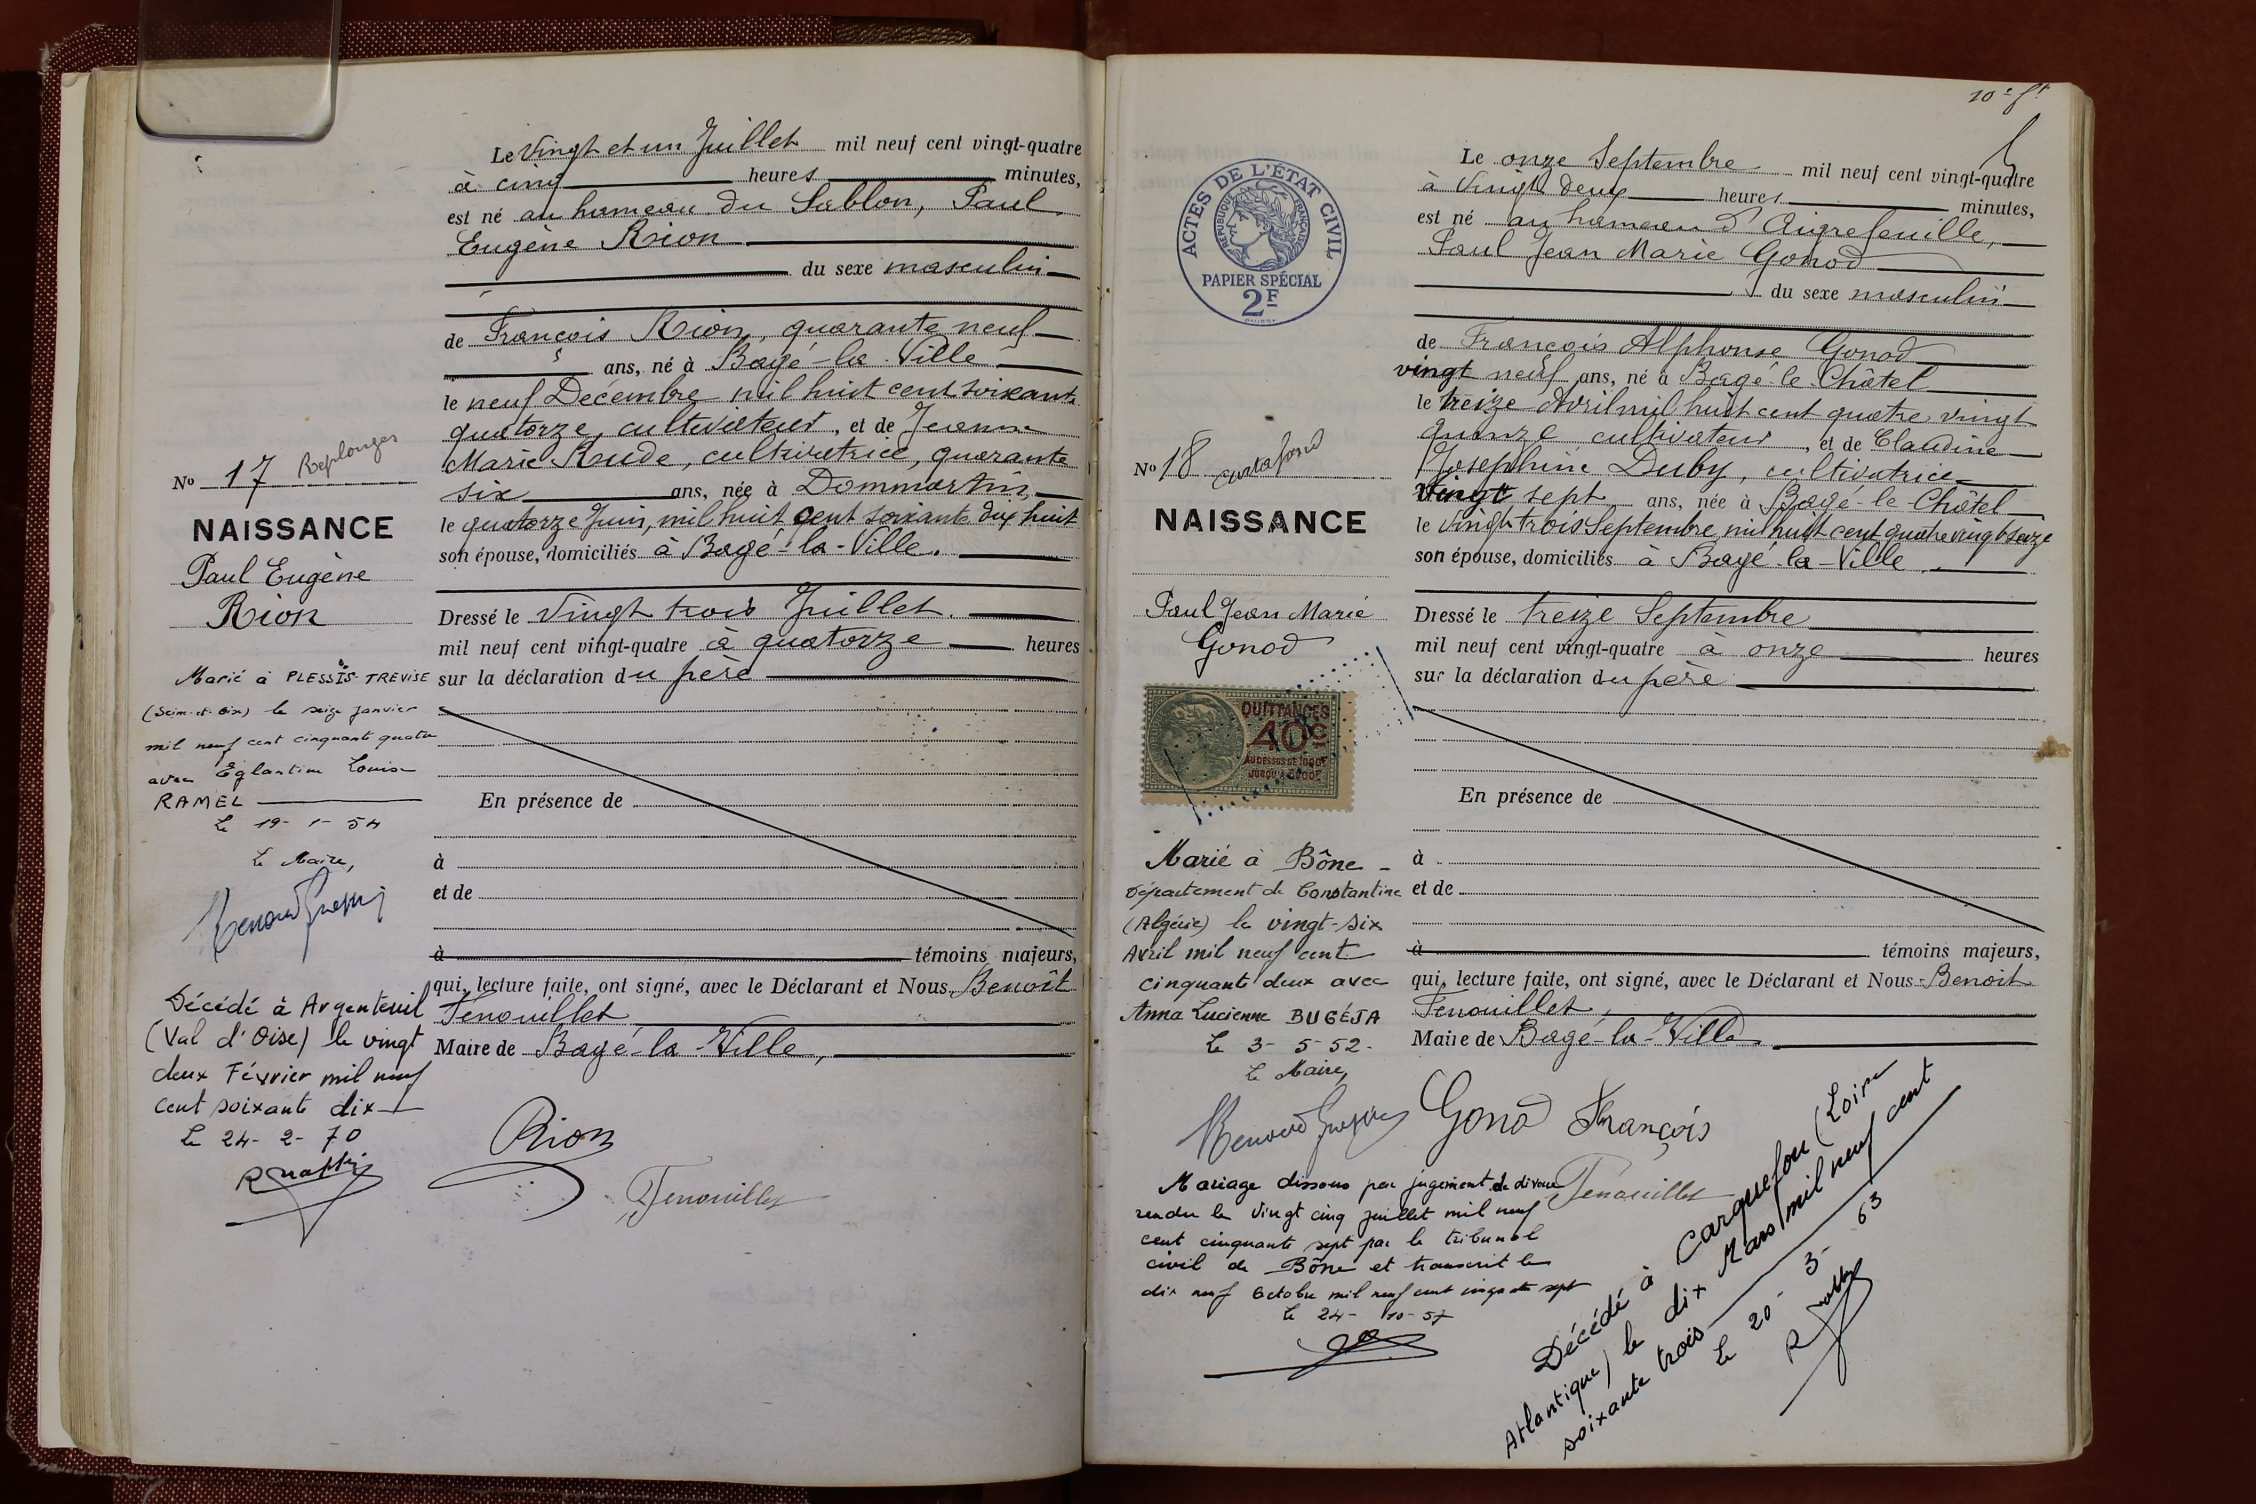 Le Vingt et un Juillet mil neuf cent vingt-quatre
à cinq heures minutes,
est né au hameau du Sablon, Paul
Eugène Rion
du sexe masculin
de François Rion, quarante neuf
ans, né à Bagé-la-Ville
le neuf Décembre mil huit cent soixante
quatorze, cultivateur, et de Jeanne
Marie Rude, cultivatrice, quarante
six ans, née à Dommartin,
le quatorze Juin, mil huit cent soixante dix huit
son épouse, domiciliés à Bagé-la-Ville.
Dressé le Vingt trois Juillet
mil neuf cent vingt-quatre à quatorze heures
sur la déclaration du père
En présence de
à
et de
à témoins majeurs,
qui, lecture faite, ont signé, avec le Déclarant et Nous Benoît
Fenouillet
Maire de Bagé-la-Ville,
Rion
Fenouillet
No 17 Replonges
NAISSANCE
Paul Eugène
Rion
Marié à PLESSIS-TREVISE
(Seine-et-Oise) le seize janvier
mil neuf cent cinquante quatre
avec Eglantine Louise
RAMEL
Le 19-1-54
Le Maire,
Décédé à Argenteuil
(Val d'Oise) le vingt
deux Février mil neuf
cent soixante dix
Le 24-2-70
10e ft
ACTES DE L'ÉTAT CIVIL
RÉPUBLIQUE FRANÇAISE
PAPIER SPÉCIAL
2F
Le onze Septembre mil neuf cent vingt-quatre
à Vingt deux heures minutes,
est né au hameau d'Aigrefeuille,
Paul Jean Marie Gonod
du sexe masculin
de François Alphonse Gonod
vingt neuf ans, né à Bagé-le-Châtel
le treize Avril mil huit cent quatre vingt
quinze cultivateur, et de Claudine
Joséphine Duby, cultivatrice
Vingt sept ans, née à Bagé-le-Châtel
le Vingt trois Septembre mil huit cent quatre vingt seize
son épouse, domiciliés à Bagé-la-Ville
Dressé le treize Septembre
mil neuf cent vingt-quatre à onze heures
sur la déclaration du père
En présence de
à
et de
à témoins majeurs,
qui, lecture faite, ont signé, avec le Déclarant et Nous Benoit
Fenouillet,
Maire de Bagé-la-Ville
Gonod François
Fenouillet
No 18
NAISSANCE
Paul Jean Marie
Gonod
QUITTANCES
40c
AU DESSUS DE 1000F
JUSQU'A 3000F
Marié à Bône
Département de Constantine
(Algérie) le vingt-six
Avril mil neuf cent
cinquante deux avec
Anna Lucienne BUGÉJA
Le 3-5-52-
Le Maire,
Mariage dissous par jugement de divorce
rendu le Vingt cinq juillet mil neuf
cent cinquante sept par le tribunal
civil de Bône et transcrit le
dix neuf Octobre mil neuf cent cinquante sept
Le 24-10-57
Décédé à Carquefou (Loire
Atlantique) le dix Mars mil neuf cent
soixante trois
Le 20-3-63